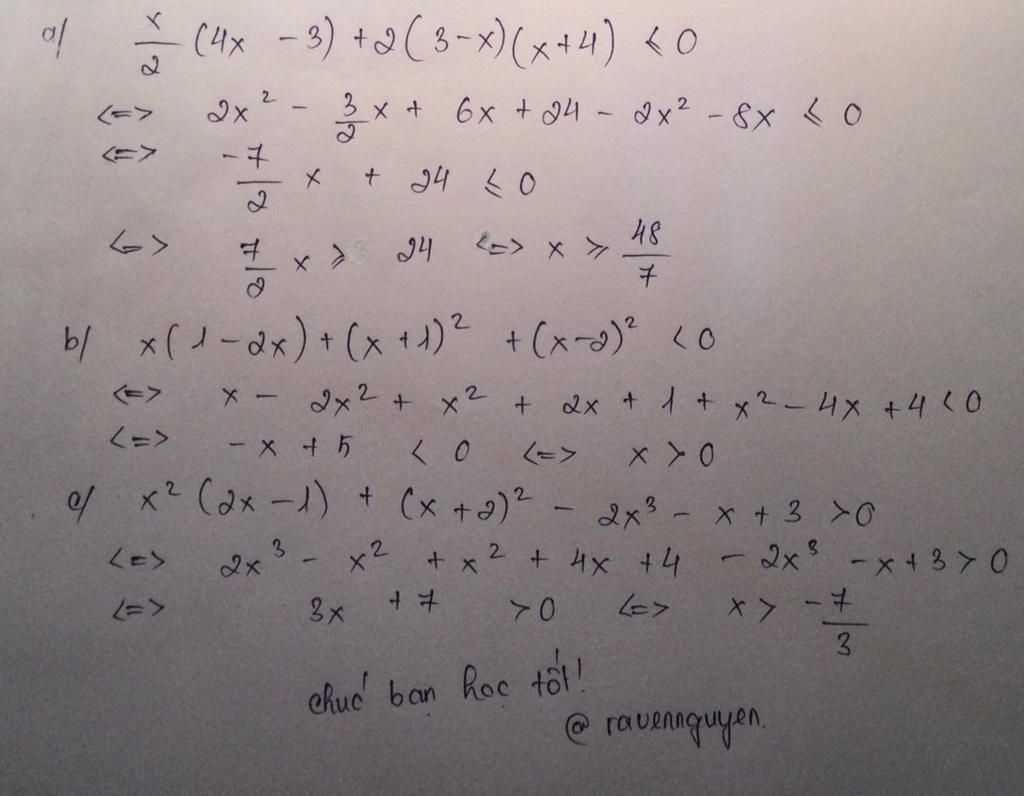 a/ x/2 (4x - 3) + 2(3-x)(x+4) ≤ 0
<=> 2x² - 3/2 x + 6x + 24 - 2x² - 8x ≤ 0
<=> -7/2 x + 24 ≤ 0
<=> 7/2 x ≥ 24 <=> x ≥ 48/7
b/ x(1-2x) + (x+1)² + (x-2)² < 0
<=> x - 2x² + x² + 2x + 1 + x² - 4x + 4 < 0
<=> -x + 5 < 0 <=> x > 0
c/ x² (2x-1) + (x+2)² - 2x³ - x + 3 > 0
<=> 2x³ - x² + x² + 4x + 4 - 2x³ - x + 3 > 0
<=> 3x + 7 > 0 <=> x > -7/3
chuć bạn học tốt!
@ ravennguyen.